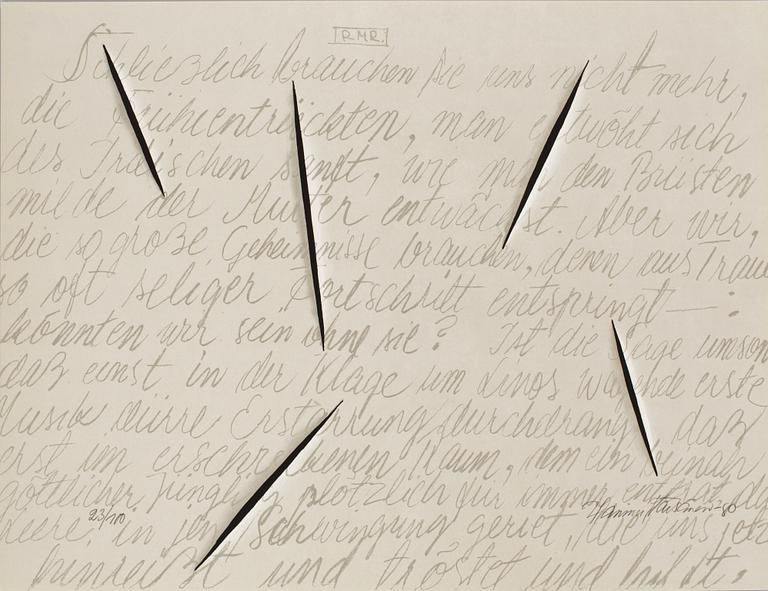 R.M.R.
Schließlich brauchen sie uns nicht mehr,
die Früheentrückten, man entwöht sich
des Irdischen sanft, wie man den Brüsten
milde der Mutter entwächst. Aber wir,
die so große Geheimnisse brauchen, denen aus Traue
so oft seliger Fortschritt entspringt — :
könnten wir sein ohne sie? Ist die Sage umson
daß einst in der Klage um Linos wagende erste
Musik dürre Erstarrung durchdrang, daß
erst im erschrockenen Raum, dem ein beinah
göttlicher Jüngling plötzlich für immer entrat, da
Leere in jene Schwingung geriet, die uns jetz
hinreißt und tröstet und hilft.
23/110